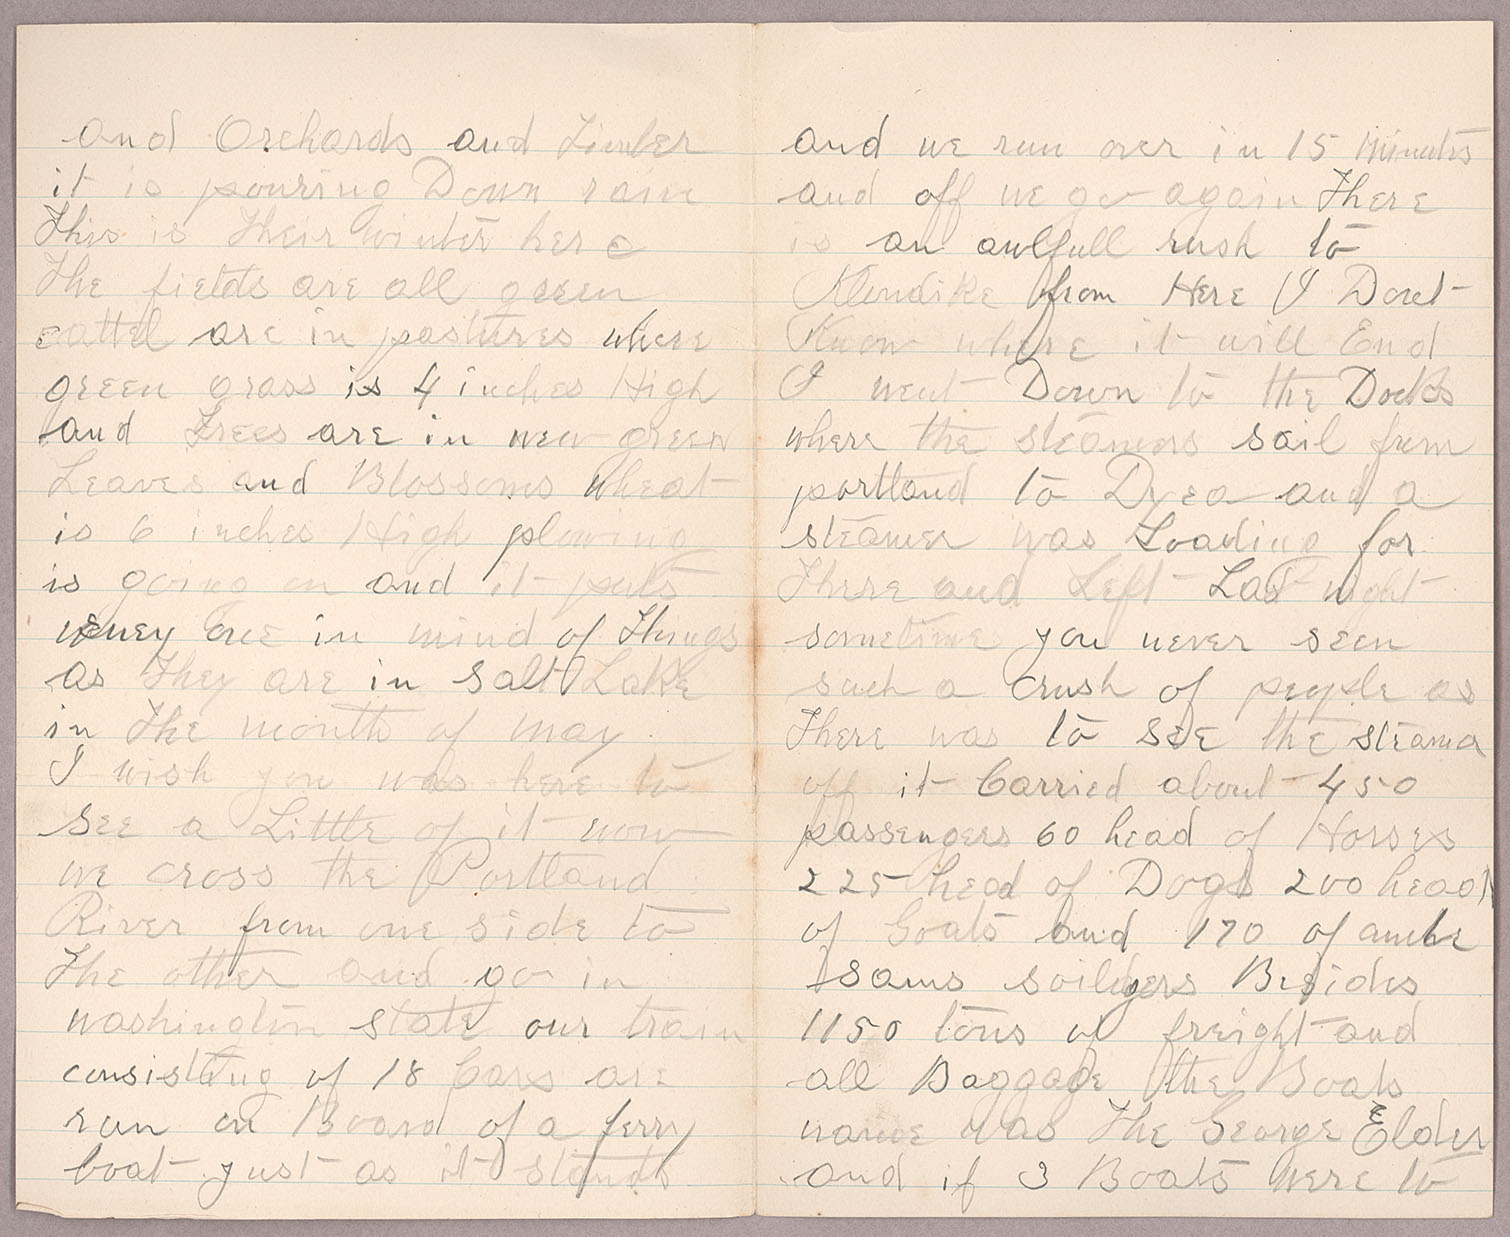 and Orchards and Timber
it is pouring Down rain
This is Their winter here
The fields are all green
cattel are in pastures where
green grass is 4 inches High
and Trees are in new green
Leaves and Blossoms wheat
is 6 inches High plowing
is going on and it puts
one in mind of Things
as They are in Salt Lake
in The month of may
I wish you was here to
see a Little of it now
we cross the Portland
River from one side to
The other and go in
washington state our train
consisting of 18 Cars are
run on Board of a ferry
boat just as it stands
and we run over in 15 Minutes
and off we go again There
is an awlfull rush to
Klondike from Here I Dont
Know where it will End
I went Down to the Docks
where the steamers sail from
portland to Dyea and a
steamer was Loading for
There and Left Last night
sometime you never seen
such a crush of people as
There was to see the steamer
off it Carried about 450
passengers 60 head of Horses
225 head of Dogs 200 head
of Goats and 170 of uncle
sams Besides
1150 tons of freight and
all Baggage the Boats
name was The George Elder
and if 3 Boats were to